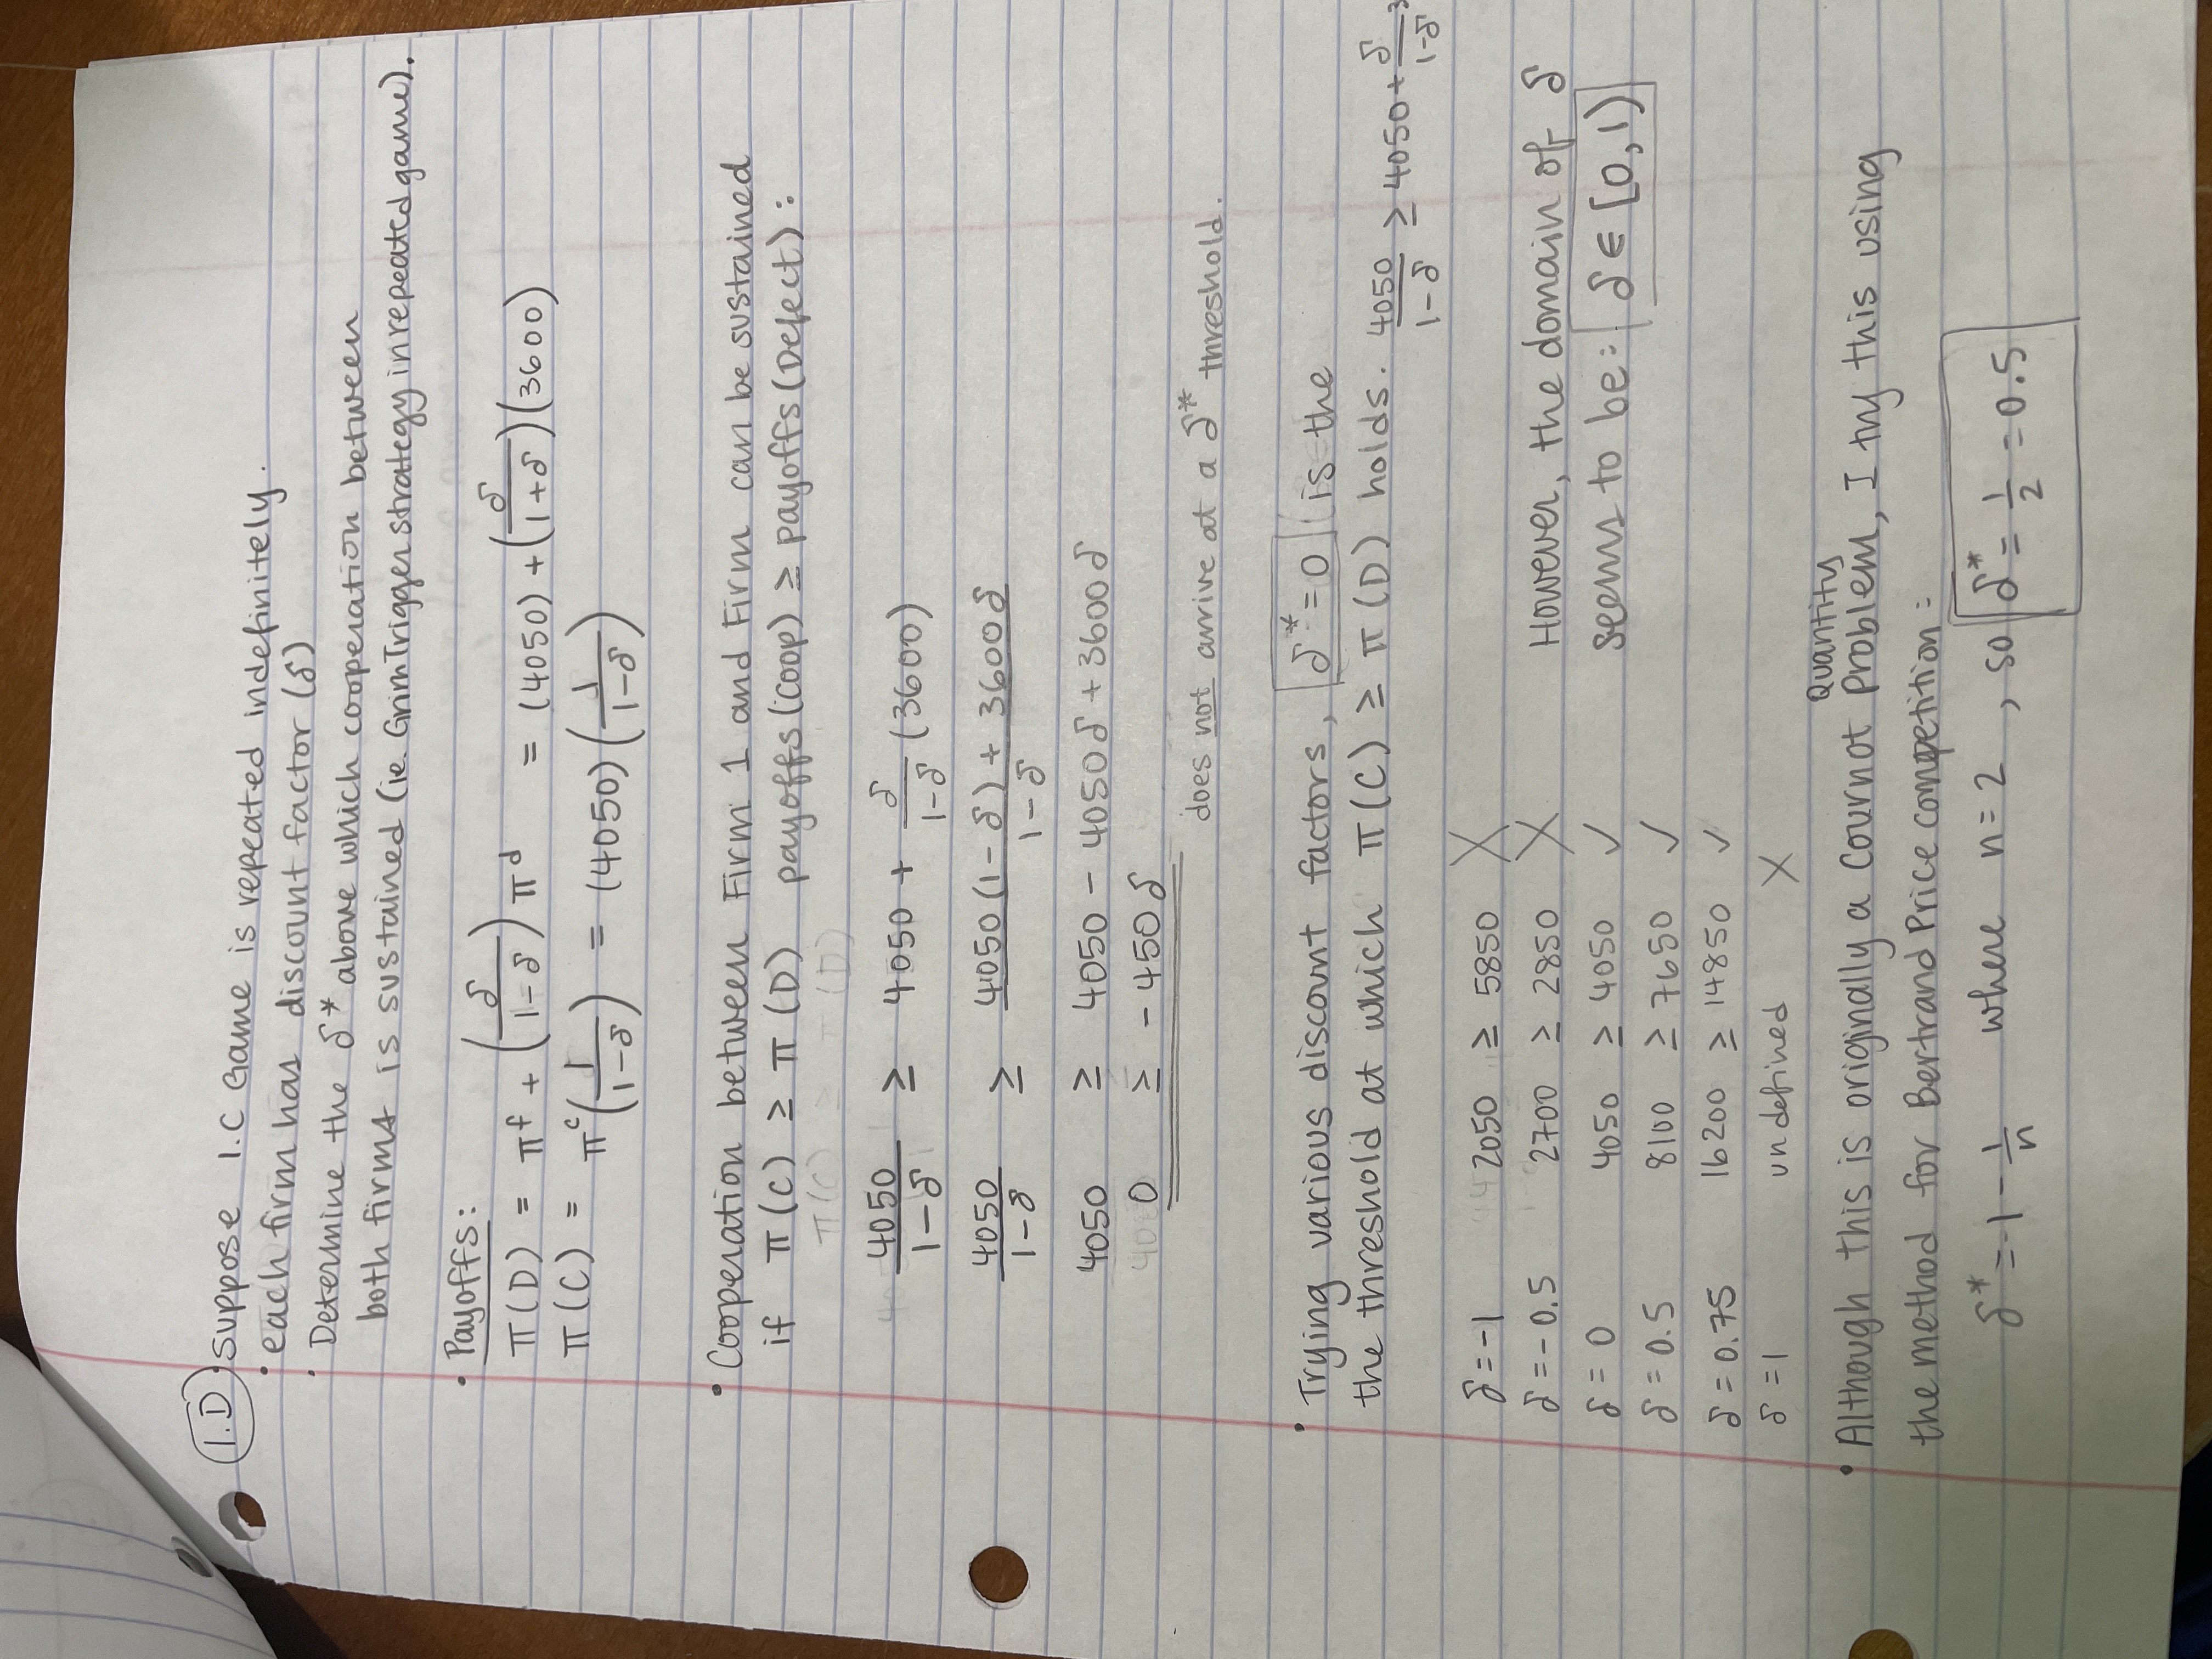 1.D) Suppose 1.C Game is repeated indefinitely.
• each firm has discount factor (δ)
• Determine the δ* above which cooperation between
both firms is sustained (ie. Grim Trigger strategy in repeated game).
• Payoffs:
π(D) = πᶠ + (δ/(1-δ)) πᵈ = (4050) + (δ/(1+δ))(3600)
π(C) = πᶜ(1/(1-δ)) = (4050)(1/(1-δ))
• Cooperation between Firm 1 and Firm can be sustained
if π(C) ≥ π(D) payoffs(Coop) ≥ payoffs(Defect):
π(C) ≥ π(D)
4050/(1-δ) ≥ 4050 + δ/(1-δ) (3600)
4050/(1-δ) ≥ (4050(1-δ) + 3600δ)/(1-δ)
4050 ≥ 4050 - 4050δ + 3600δ
0 ≥ -450δ
does not arrive at a δ* threshold.
• Trying various discount factors, δ*=0 is the
the threshold at which π(C) ≥ π(D) holds. 4050/(1-δ) ≥ 4050 + δ/(1-δ)
δ=-1 2050 ≥ 5850 X
δ=-0.5 2700 ≥ 2850 X However, the domain of δ
δ=0 4050 ≥ 4050 ✓ seems to be: δ∈[0,1)
δ=0.5 8100 ≥ 7650 ✓
δ=0.75 16200 ≥ 14850 ✓
δ=1 undefined X
Quantity
• Although this is originally a Cournot Problem, I try this using
the method for Bertrand Price competition:
δ* = 1 - 1/n where n=2, so δ* = 1/2 = 0.5